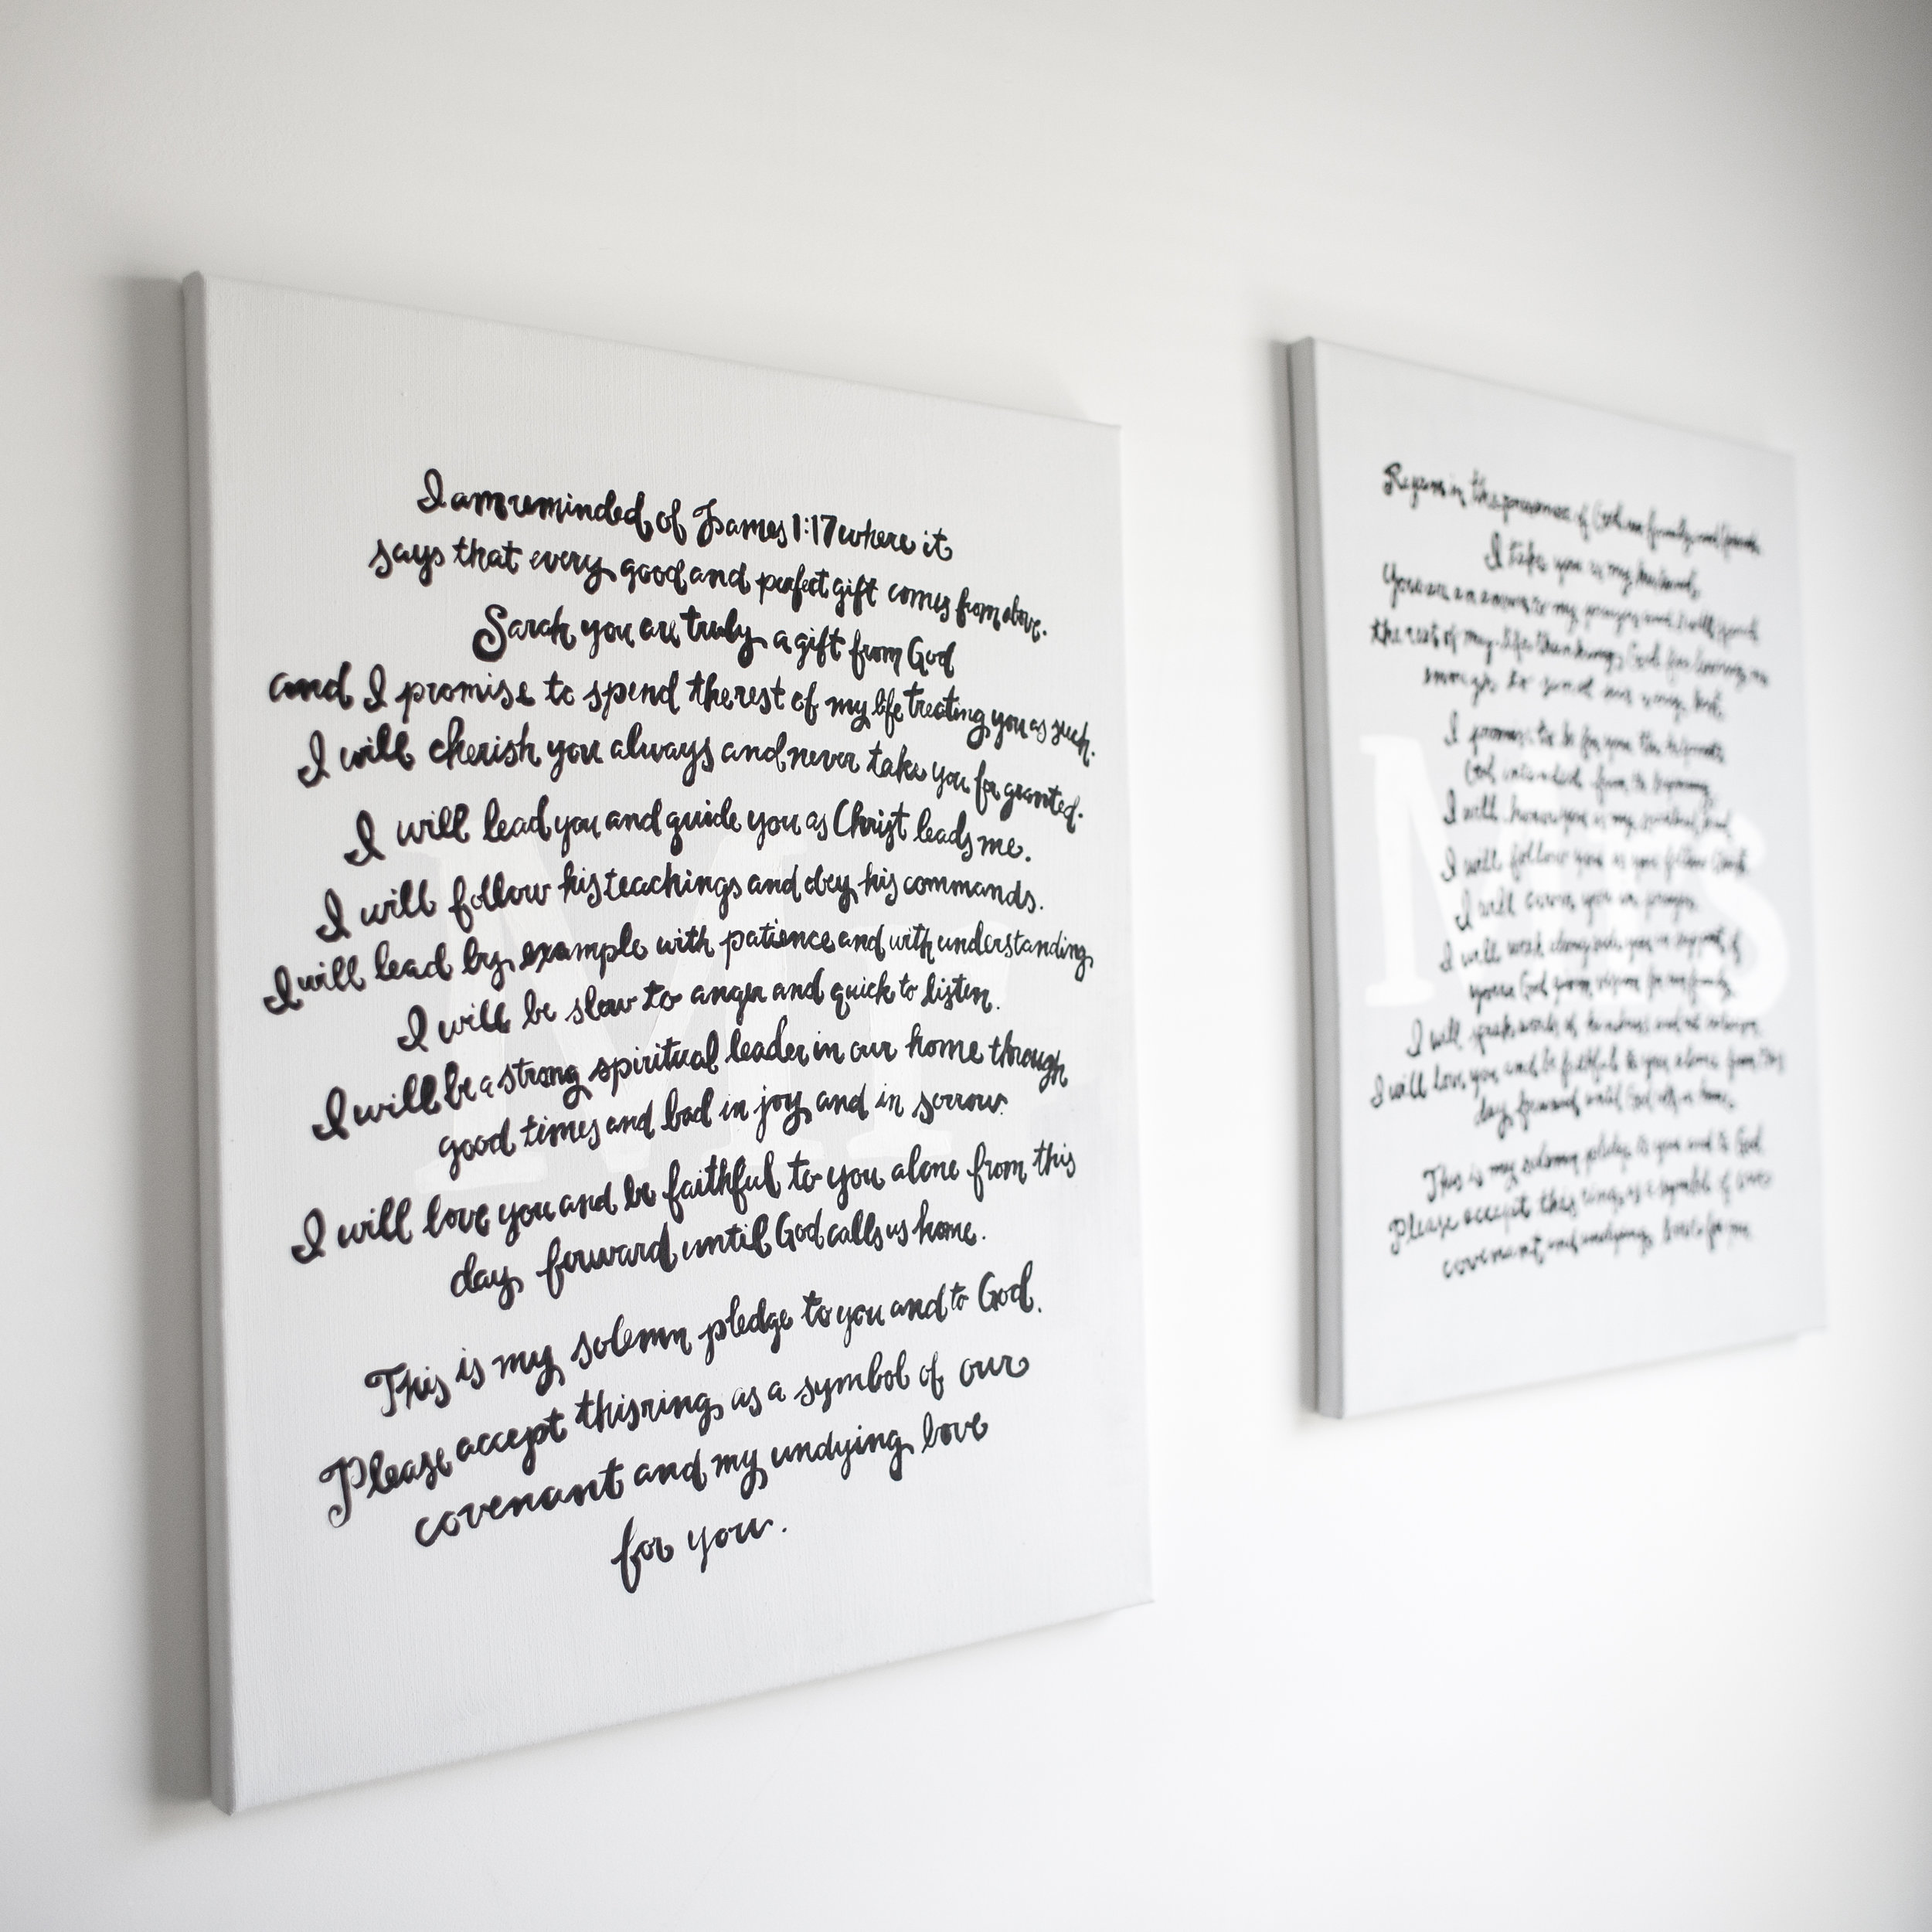 I am reminded of James 1:17 where it
says that every good and perfect gift comes from above.
Sarah you are truly a gift from God
and I promise to spend the rest of my life treating you as such.
I will cherish you always and never take you for granted.
I will lead you and guide you as Christ leads me.
I will follow his teachings and obey his commands.
I will lead by example with patience and with understanding
I will be slow to anger and quick to listen.
I will be a strong spiritual leader in our home through
good times and bad in joy and in sorrow.
I will love you and be faithful to you alone from this
day forward until God calls us home.
This is my solemn pledge to you and to God.
Please accept this ring as a symbol of our
covenant and my undying love
for you.
Mr
in the presence of God
I take you as my husband,
to my prayers and I will spend
the rest of my life thanking God for loving me
enough to send
I promise to be for you the helpmate
God intended from the beginning
I will honor you as my spiritual head
I will follow you as you follow Christ
I will cover you in prayer
I will work alongside you in support of
your God given vision for our family
I will speak words of kindness and
I will love you and be faithful to you alone from this
day forward until God calls us home.
This is my solemn pledge to you and to God
Please accept this ring as a symbol of our
covenant and undying
Mrs